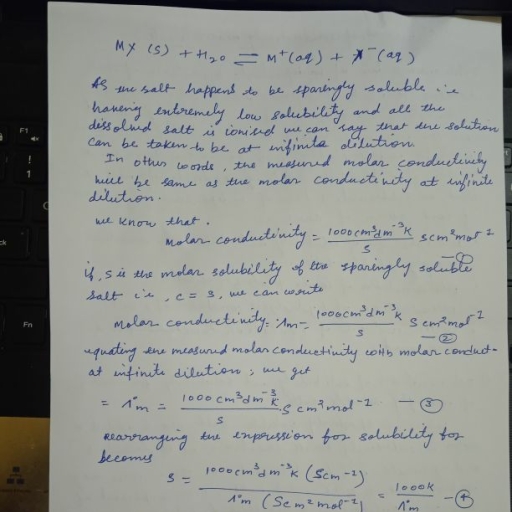 MX (s) + H2O ⇌ M+(aq) + X-(aq)
As the salt happens to be sparingly soluble i.e
having extremely low solubility and all the
dissolved salt is ionised we can say that the solution
can be taken to be at infinite dilution.
In other words, the measured molar conductivity
will be same as the molar conductivity at infinite
dilution.
we know that.
Molar conductivity = 1000 cm³ dm⁻³ K / S S cm² mol⁻¹ —①
if, S is the molar solubility of the sparingly soluble
salt i.e, c = s, we can write
Molar conductivity = Λm = 1000 cm³ dm⁻³ K / S S cm² mol⁻¹ —②
equating the measured molar conductivity with molar conduct-
at infinite dilution, we get
= Λ°m = 1000 cm³ dm⁻³ K / S S cm² mol⁻¹ —③
rearranging the expression for solubility for
becomes
S = 1000 cm³ dm⁻³ K (S cm⁻¹) / Λ°m (S cm² mol⁻¹) = 1000K / Λ°m —④
F1
!
1
Fn